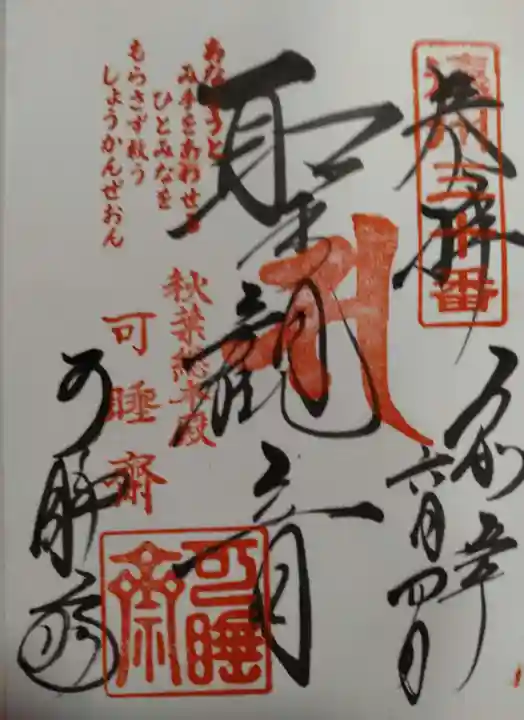 遠州三十三番
奉拝
令和五年
六月四日
聖観音
秋葉総本殿
可睡齋
可睡斎
あなとうと
み手をあわせる
ひとみなを
もらさず救う
しょうかんぜおん
可睡齋